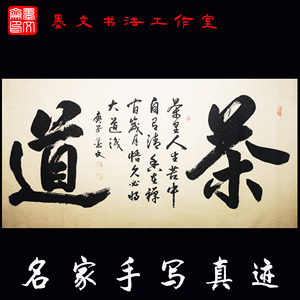 墨文书法工作室
茶
茶里人生苦中
自有清香在禅
里歲月悟久必將
大道成
庚子 墨文
道
名家手写真迹